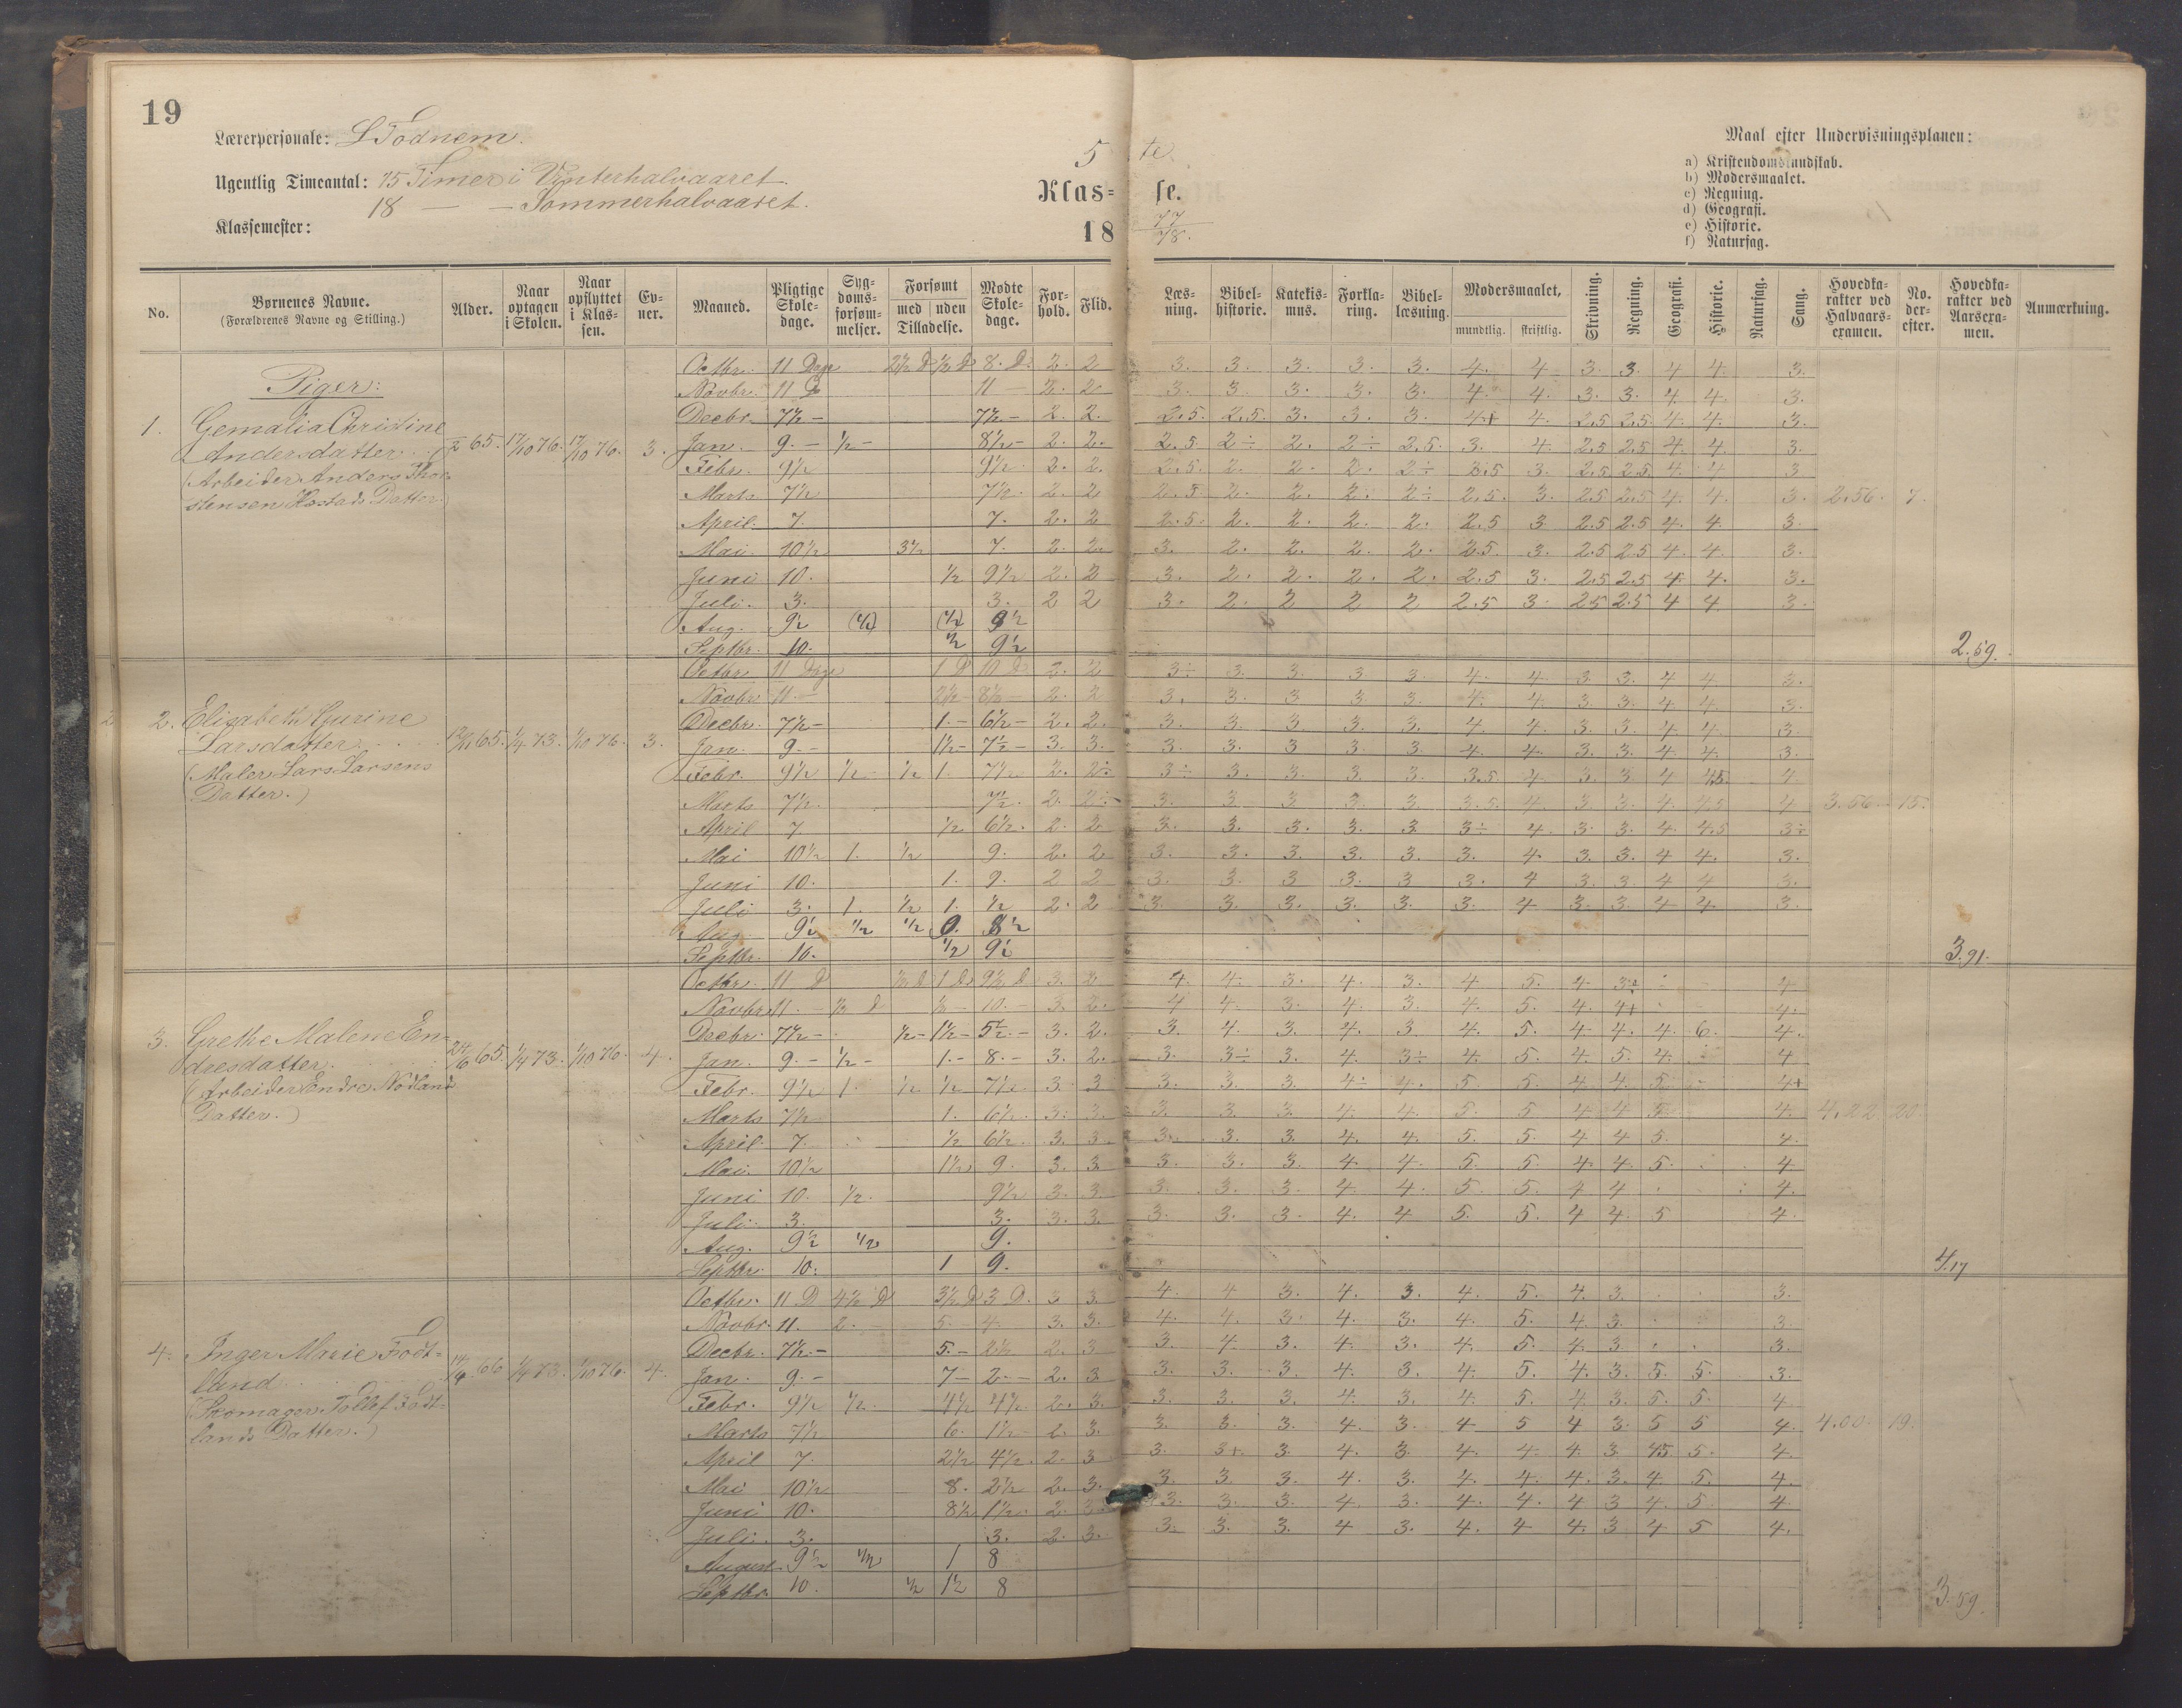 19
Lærerpersonale: L Todnem.
Ugentlig Timeantal: 15 Timer i Vinterhalvaaret.
18 — — Sommerhalvaaret.
Klassemester:
5 te
Klas= se.
18 77/78.
Maal efter Undervisningsplanen:
a) Kristendomskundskab.
b) Modersmaalet.
c) Regning.
d) Geografi.
e) Historie.
f) Naturfag.
No. Børnenes Navne. (Forældrenes Navne og Stilling.) Alder. Naar optagen i Skolen. Naar opflyttet i Klassen. Evner. Maaned. Pligtige Skoledage. Sygdomsforsømmelser. Forsømt med uden Tilladelse. Mødte Skoledage. Forhold. Flid. Læsning. Bibelhistorie. Katekismus. Forklaring. Bibellæsning. Modersmaalet, mundtlig. skriftlig. Skrivning. Regning. Geografi. Historie. Naturfag. Sang. Hovedkarakter ved Halvaarsexamen. No. derefter. Hovedkarakter ved Aarsexamen. Anmærkning.
Piger:
1. Gemalia Christine
Andersdatter 65. 17/10 76. 17/10 76. 3.
(Arbeider Anders Thor-
stensen Datter.)
Octbr. 11 Dage 2½ D ½ D 8. D. 2. 2 3. 3. 3. 3. 3. 4. 4 3. 3. 4 4. 3.
Novbr. 11 D 11 — 2. 2 3. 3 3. 3. 3. 4. 4. 3. 3. 4. 4. 3.
Decbr. 7½ — 7½ — 2. 2. 2.5. 2.5. 3. 3. 3. 4+ 4. 2.5 2.5 4. 4. 3.
Jan. 9. — ½ — 8½ — 2. 2. 2.5 2÷ 2. 2÷ 2.5. 3. 4. 2.5 2.5 4. 4. 3.
Febr. 9½ 9½ 2. 2. 2.5. 2. 2. 2. 2÷ 2.5 3. 2.5 2.5 4. 4 3
Marts 7½ 7½. 2. 2 2.5 2. 2. 2. 2÷ 2.5. 3. 2.5 2.5 4. 4. 3. 2.56. 7.
April. 7. 7. 2. 2 2.5. 2. 2. 2. 2. 2.5 3 2.5 2.5 4. 4. 3.
Mai. 10½ 3½ 7. 2. 2. 3. 2. 2. 2. 2. 2.5. 3. 2.5 2.5 4. 4. 3.
Juni 10. ½ 9½ 2. 2 3. 2. 2. 2. 2. 2.5 3. 2.5 2.5 4. 4. 3.
Juli. 3. 3. 2 2 3. 2. 2 2 2 2.5 3. 2.5 2.5 4 4 3.
Aug. 9½ (½) (½) 9½
Septbr. 10. ½ 9½ 2.59.
2. Elisabeth Gurine
Larsdatter 65. 1/4 73. 1/10 76. 3.
(Maler Lars Larsens
Datter.)
Octbr. 11 Dage 1 D 10 D 2. 2 3÷ 3. 3. 3. 3. 4. 4. 3. 3. 4 4 3.
Novbr. 11. — 2½ — 8½ — 2. 2 3. 3. 3 3. 3. 4. 4 3. 3. 4 4. 3.
Decbr. 7½ — 1. — 6½ — 2. 2. 3. 3. 3. 3. 3. 4 4. 3. 3 4 4. 3.
Jan. 9. — 1½ — 7½ — 3. 3. 3. 3. 3 3. 3. 4 4. 3. 3. 4 4. 3.
Febr. 9½ ½ ½ 1. 7½ 2. 2÷ 3÷ 3. 3. 3. 3. 3.5. 4. 3. 3 4 4.5. 4
Marts 7½. 7½. 2. 2÷ 3. 3. 3 3. 3. 3.5. 4. 3. 3. 4. 4.5 4 3.56. 15.
April 7 ½ 6½. 2. 2 3. 3. 3. 3. 3. 3÷ 4. 3. 3. 4. 4.5 3÷
Mai 10½ 1. ½ 9. 2. 2 3. 3. 3. 3. 3. 3. 4. 3. 3. 4 4. 3.
Juni 10. 1. 9. 2 2 3. 3. 3 3. 3 3. 4 3. 3. 4 4 3.
Juli 3. 1. ½ 1. ½ 2. 2 3. 3. 3. 3. 3. 3. 4 3. 3 4 4. 3.
Aug. 9½ ½ ½ 8½
Septbr. 10. ½ 9½ 3.91.
3. Grethe Malene En-
dresdatter 24/6 65. 1/4 73. 1/10 76. 4.
(Arbeider Endre Nodland
Datter.)
Octbr. 11 D ½ D 1 D. 9½ D 3. 2 4. 4. 3. 4. 3. 4 5. 4. 4
Novbr. 11. — ½ D ½ — 10. — 3. 2. 4 4. 3. 4. 3. 4. 5. 4. 4+ 4.
Decbr. 7½ — ½ — 1½ — 5½. — 3. 2. 3. 4. 3. 4. 3 4. 5. 4. 4. 4. 6. 4.
Jan. 9. — ½ — 1. — 8. — 3. 2. 3. 3÷ 3. 4. 3÷ 4. 5. 4. 5. 4. 4
Febr. 9½ 1. ½ ½ 7½ 3. 3 3. 3. 3. 4÷ 4. 5. 5. 4. 4. 5. 4+
Marts 7½ 1. 6½. 3. 3. 3. 3. 3. 4. 4. 5. 5. 4 4 5. 4. 4.22 20.
April. 7. ½ 6½. 3. 3. 3. 3. 3. 4. 4. 5. 5. 4 4 5. 4.
Mai. 10½ 1½ 9. 3. 3. 3. 3. 3. 4. 4. 5. 5. 4 4. 5. 4
Juni. 10. ½. 9½ 3. 3. 3. 3. 3. 4. 4. 5. 5. 4 4 4.
Juli. 3. 3. 3. 3. 3. 3. 3. 4. 4 5. 5. 4 4. 5 4.
Aug. 9½ ½ 9.
Septbr. 10. 1 9. 4.17
4. Inger Marie Fodt-
land 66 1/4 73. 1/10 76. 4.
(Skomager Tollef Fodt-
lands Datter.)
Octbr. 11 D 4½ D 3½ D 3 D. 3 3. 4. 4 3. 4. 3. 4. 5. 4. 3. 3.
Novbr. 11. 2. 5. 4. 3. 3. 4. 4. 3. 4. 3. 4. 5. 4. 3. 3.
Decbr. 7½. — 5. — 2½ 2. 3 3. 4. 3. 4. 3. 4. 5. 4. 3 3.
Jan. 9. — 7 — 2. — 2. 3 3. 3. 3. 4. 3. 4. 5. 4. 3. 5. 5. 3.
Febr. 9½ ½. 4½ 4½ 2. 3. 3. 3. 3. 4. 3. 4. 5. 4. 3. 5. 5. 4
Marts 7½ 6. 1½ 2. 3. 3. 3. 3. 4. 3. 4 5 4 3. 5 5 4. 4.00. 19.
April 7. 2½ 4½. 2. 3 3. 3+. 3. 4. 3. 4. 4. 4. 3. 4.5 5. 4.
Mai 10½ 8. 2½ 2. 3. 3. 3. 3. 4. 3. 4. 4. 4. 3. 4 5. 4.
Juni 10. 8½ 1½. 2. 3. 3. 3. 3. 4. 3. 4. 4. 4 3 4. 5. 4.
Juli. 3. 3. 2. 3. 3. 3. 3. 4 3. 4. 4 4. 3. 4 5 4.
August 9½ ½ 1 8
Septbr. 10. ½ 1½ 8 3.59.